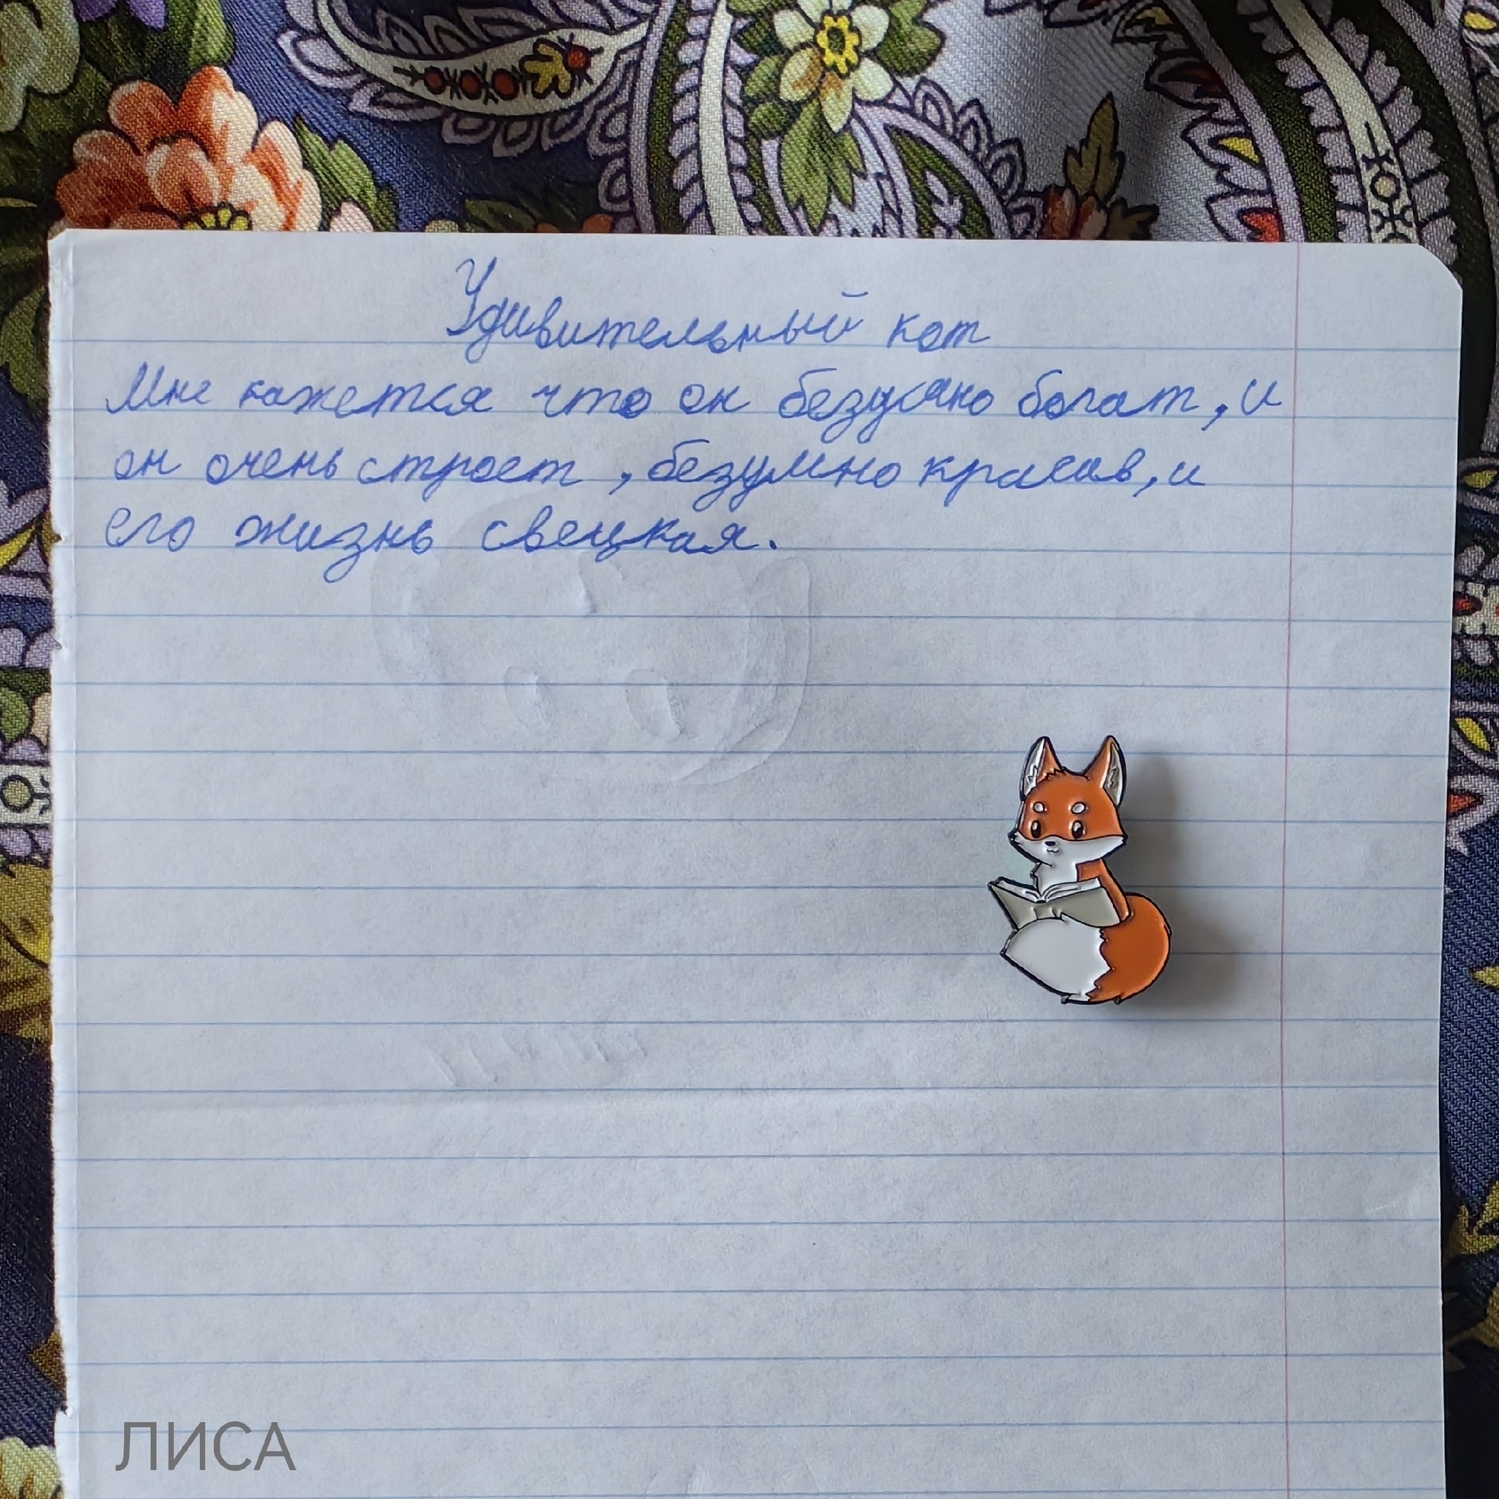 Удивительный кот
Мне кажется что он безумно богат, и
он очень строет, безумно красив, и
его жизнь свецкая.
ЛИСА